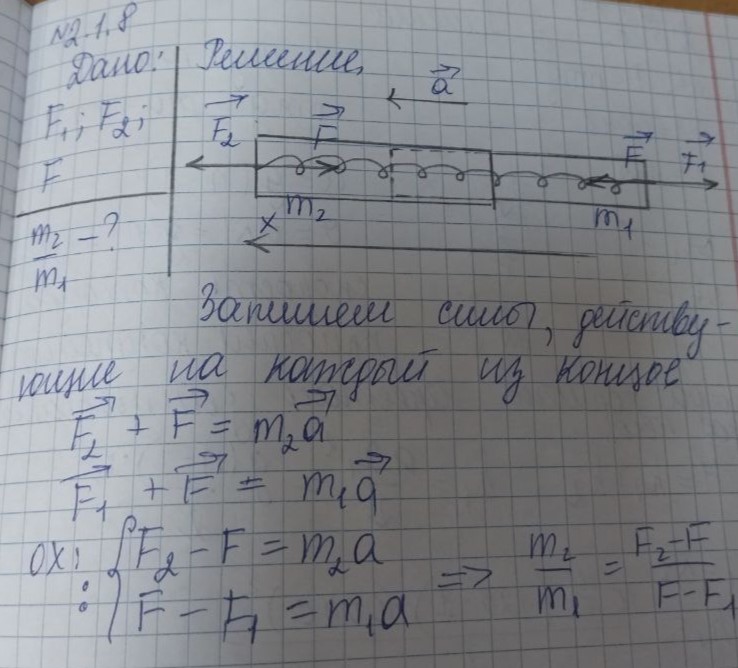 N2.1.8
Дано:
F₁; F₂;
F
m₂/m₁ - ?
Решение
a⃗
F⃗₂ F⃗ F⃗ F⃗₁
m₂ m₁
x
Запишем силы, действу-
ющие на каждый из концов
F⃗₂ + F⃗ = m₂a⃗
F⃗₁ + F⃗ = m₁a⃗
OX: { F₂ - F = m₂a
: { F - F₁ = m₁a => m₂/m₁ = (F₂-F)/(F-F₁)